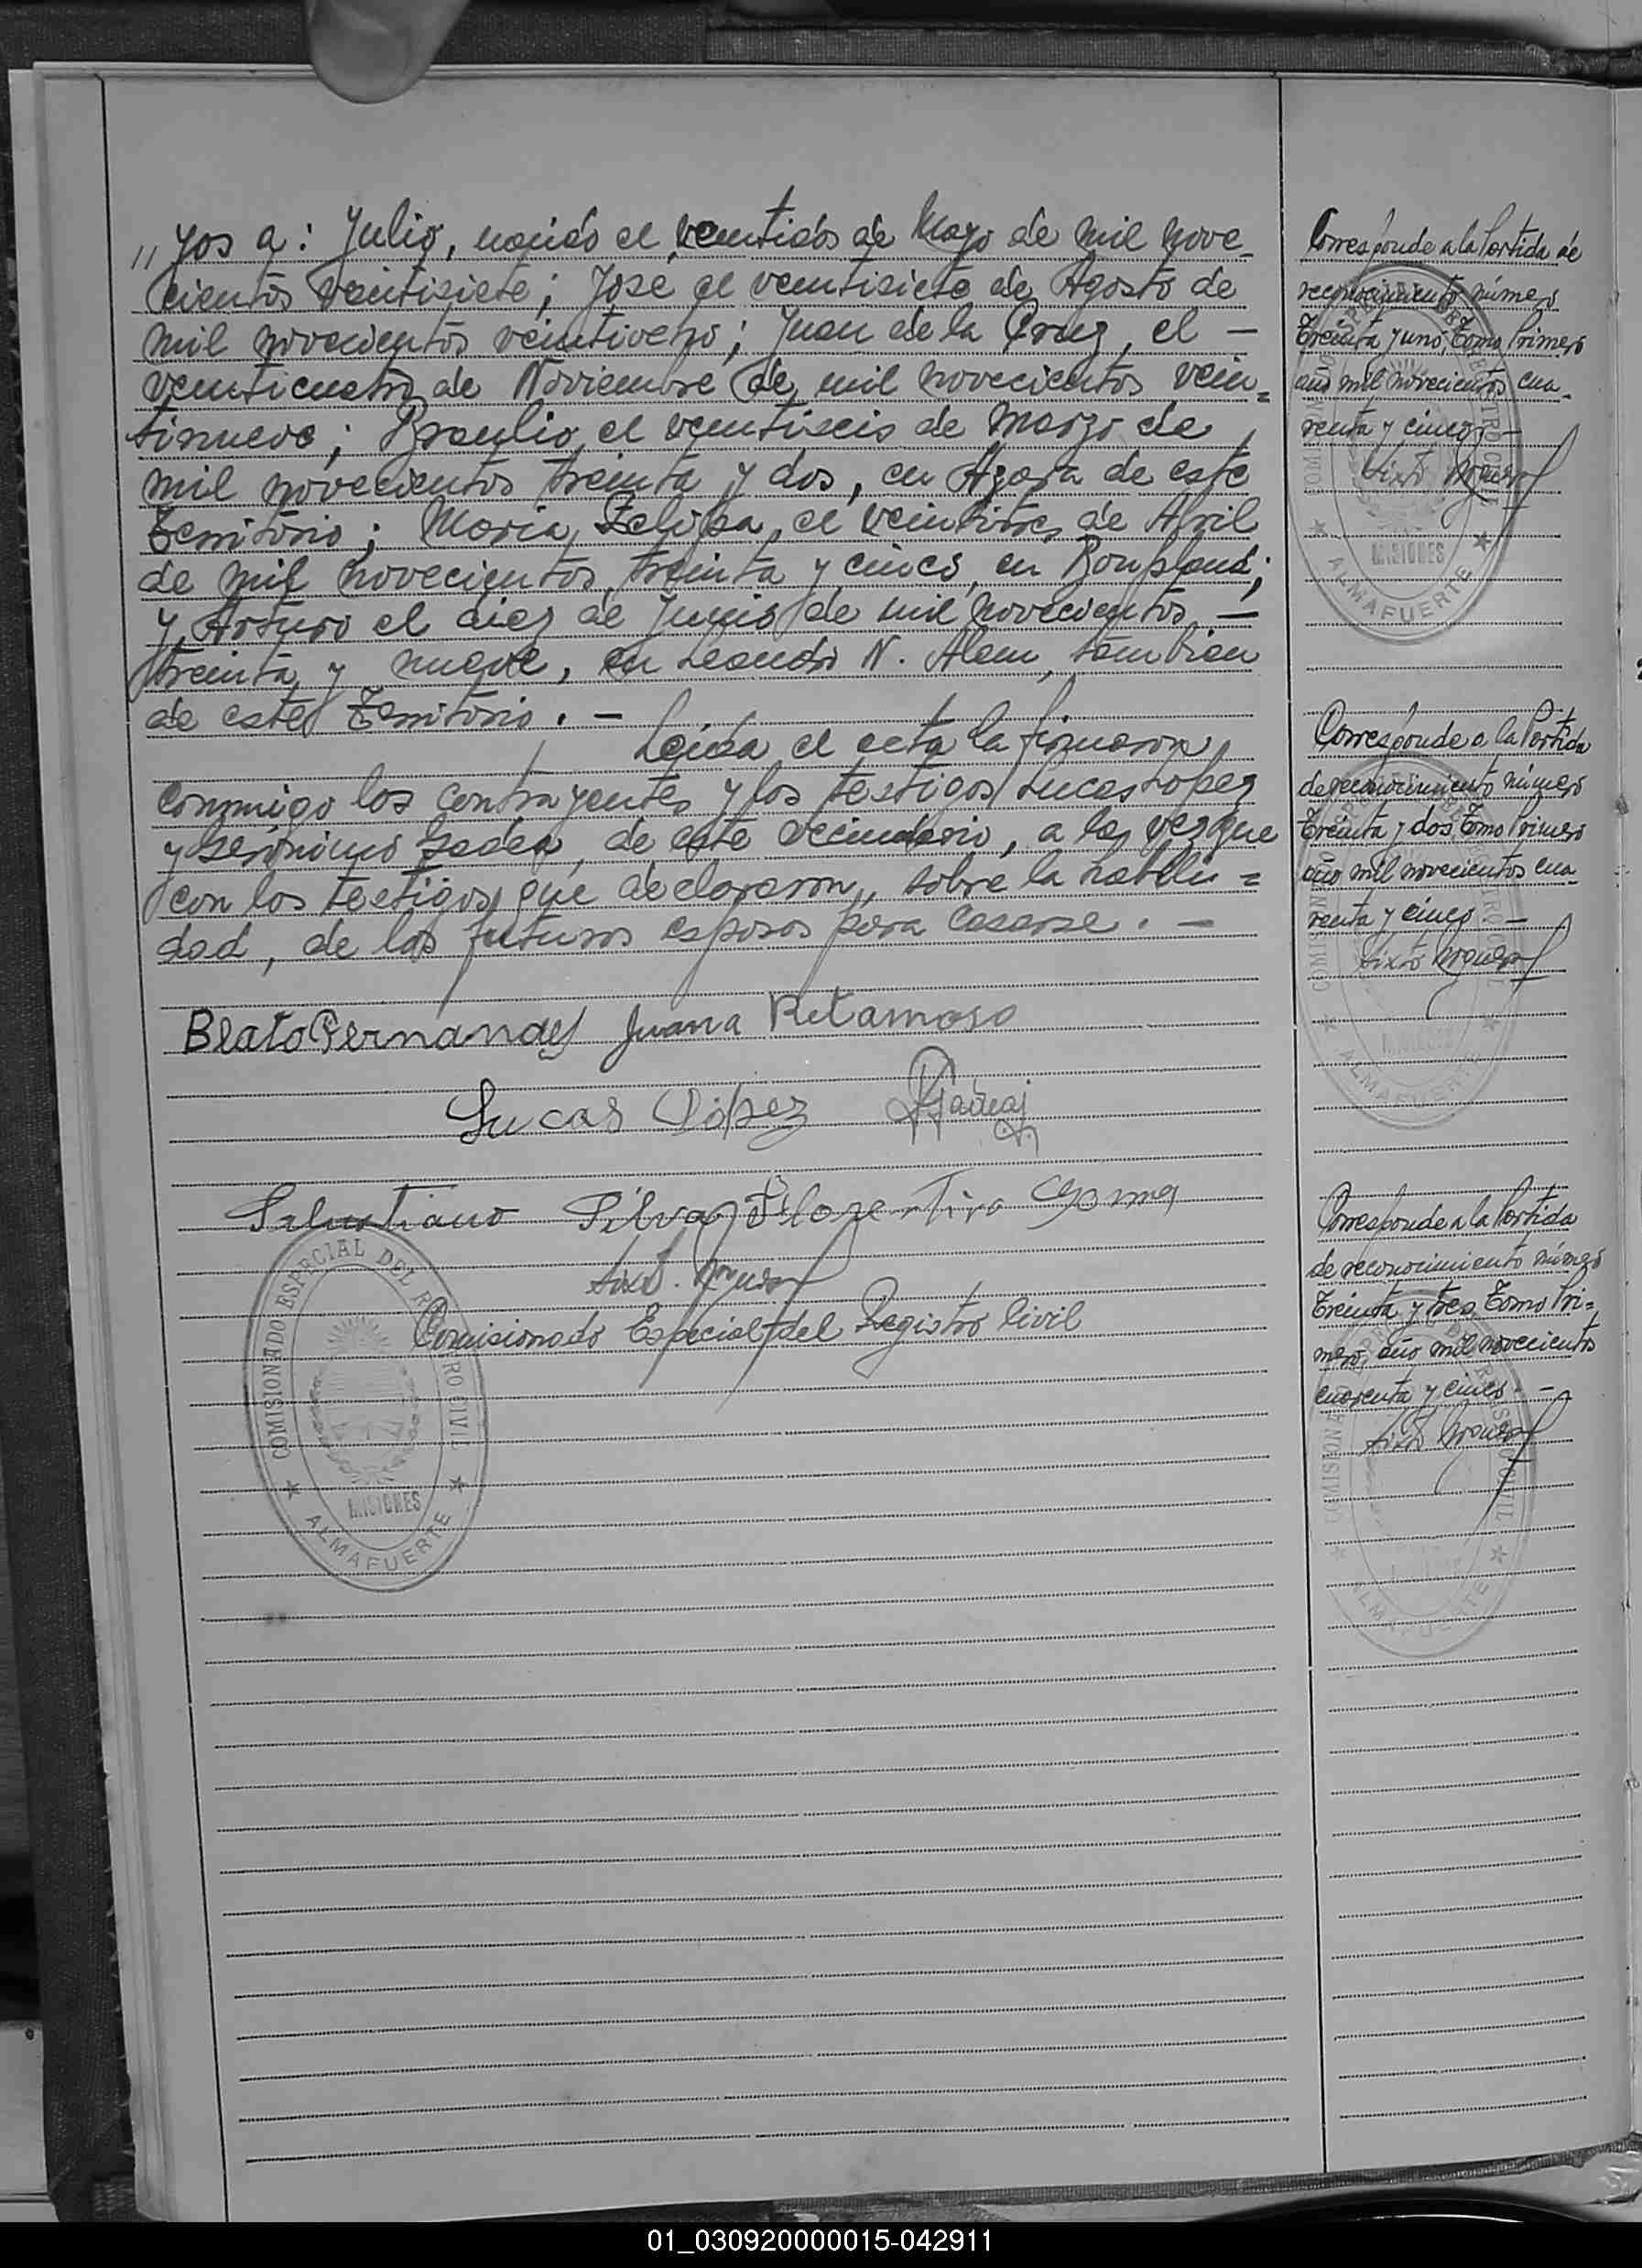 " jos a: Julio, nacido el veintidos de Mayo de mil nove-
cientos veintisiete; José el veintisiete de Agosto de
mil novecientos veintiocho; Juan de la Cruz, el —
veinticuatro de Noviembre de mil novecientos vein=
tinueve; Braulio, el veintiseis de Marzo de
mil novecientos treinta y dos, en Azara de este
Territorio; Maria Felipa, el veintitres de Abril
de mil novecientos treinta y cinco, en Bonpland;
y Arturo el diez de Junio de mil novecientos —
treinta y nueve, en Leandro N. Alem, tambien
de este Territorio. —
Leida el acta la firmaron
conmigo los contrayentes y los testigos Lucas Lopez
y Gerónimo de este vecindario, a la vez que
con los testigos que declararon, sobre la habili=
dad, de los futuros esposos para casarse. —
Beato Fernandes Juana Retamoso
Lucas López
Salustiano Silva Florentino Gomez
Sixto
Comisionado Especial del Registro Civil
COMISIONADO ESPECIAL DEL REGISTRO CIVIL
MISIONES
★ ALMAFUERTE ★
Corresponde a la Partida de
reconocimiento número
Treinta y uno, Tomo Primero
año mil novecientos cua-
renta y cinco. —
Sixto
COMISIONADO ESPECIAL DEL REGISTRO CIVIL
MISIONES
★ ALMAFUERTE ★
Corresponde a la Partida
de reconocimiento número
Treinta y dos, Tomo Primero
año mil novecientos cua-
renta y cinco. —
Sixto
COMISIONADO ESPECIAL DEL REGISTRO CIVIL
MISIONES
★ ALMAFUERTE ★
Corresponde a la Partida
de reconocimiento número
Treinta y tres, Tomo Pri=
mero, año mil novecientos
cuarenta y cinco. —
Sixto
COMISIONADO ESPECIAL DEL REGISTRO CIVIL
★ ALMAFUERTE ★
01_030920000015-042911